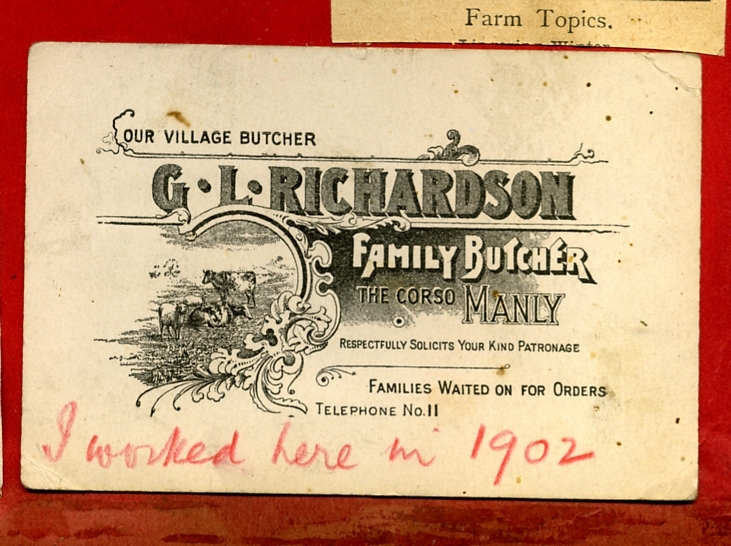 Farm Topics.
Lingering Winter
OUR VILLAGE BUTCHER
G. L. RICHARDSON
FAMILY BUTCHER
THE CORSO MANLY
RESPECTFULLY SOLICITS YOUR KIND PATRONAGE
FAMILIES WAITED ON FOR ORDERS
TELEPHONE No. 11
I worked here in 1902